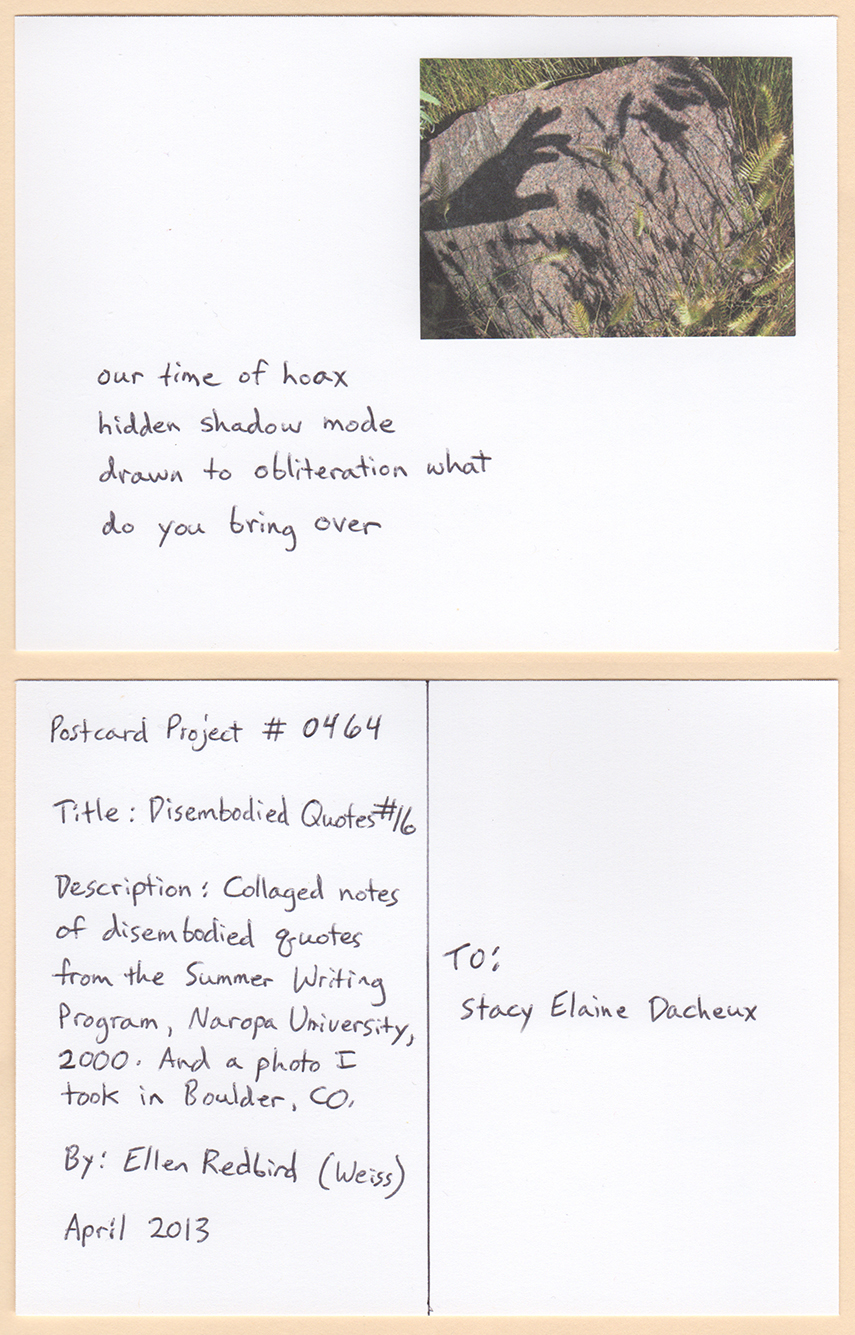 our time of hoax
hidden shadow mode
drawn to obliteration what
do you bring over
Postcard Project # 0464
Title: Disembodied Quotes #16
Description: Collaged notes
of disembodied quotes
from the Summer Writing
Program, Naropa University,
2000. And a photo I
took in Boulder, CO.
By: Ellen Redbird (Weiss)
April 2013
TO:
Stacy Elaine Dacheux